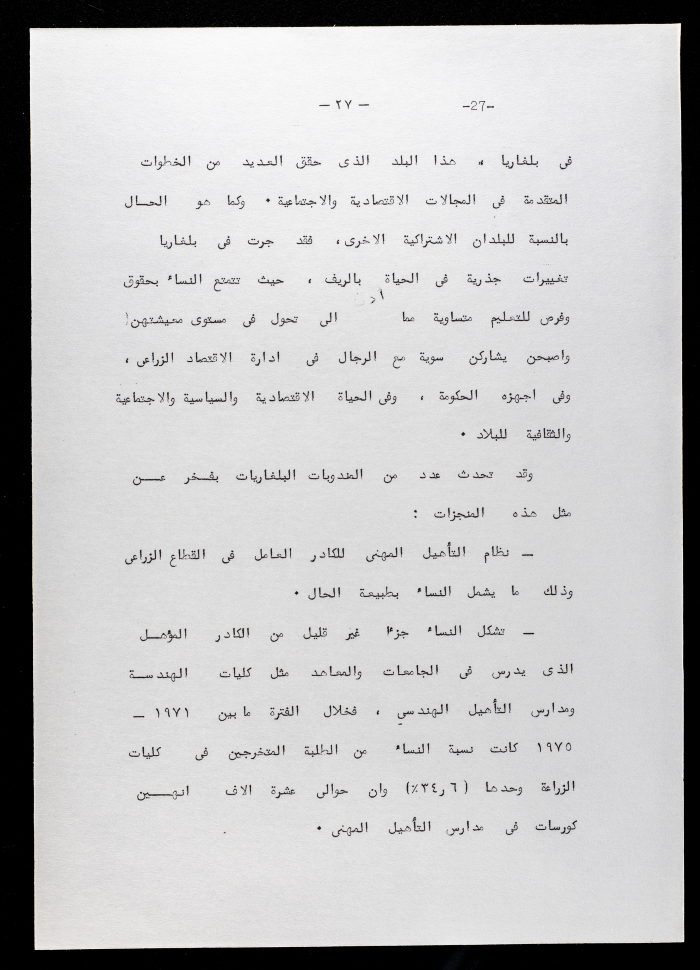 — ٢٧ —   -27-
فى بلغاريا ، هذا البلد الذى حقق العديد من الخطوات
المتقدمة فى المجالات الاقتصادية والاجتماعية • وكما هو الحال
بالنسبة للبلدان الاشتراكية الاخرى، فقد جرت فى بلغاريا
تغييرات جذرية فى الحياة بالريف ، حيث تتمتع النساء بحقوق
وفرص للتعليم متساوية مما الى تحول فى مستوى معيشتهن!
واصبحن يشاركن سوية مع الرجال فى ادارة الاقتصاد الزراعى ،
وفى اجهزه الحكومة ، وفى الحياة الاقتصادية والسياسية والاجتماعية
والثقافية للبلاد •
وقد تحدث عدد من المندوبات البلغاريات بفخر عـن
مثل هذه المنجزات :
— نظام التأهيل المهنى للكادر العامل فى القطاع الزراعى
وذلك ما يشمل النساء بطبيعة الحال •
— تشكل النساء جزءا غير قليل من الكادر المؤهـل
الذى يدرس فى الجامعات والمعاهد مثل كليات الهندسـة
ومدارس التأهيل الهندسي ، فخلال الفترة ما بين ١٩٧١ —
١٩٧٥ كانت نسبة النساء من الطلبة المتخرجين فى كليات
الزراعة وحدها (٦ر٣٤٪) وان حوالى عشرة الاف انهـين
كورسات فى مدارس التأهيل المهنى •